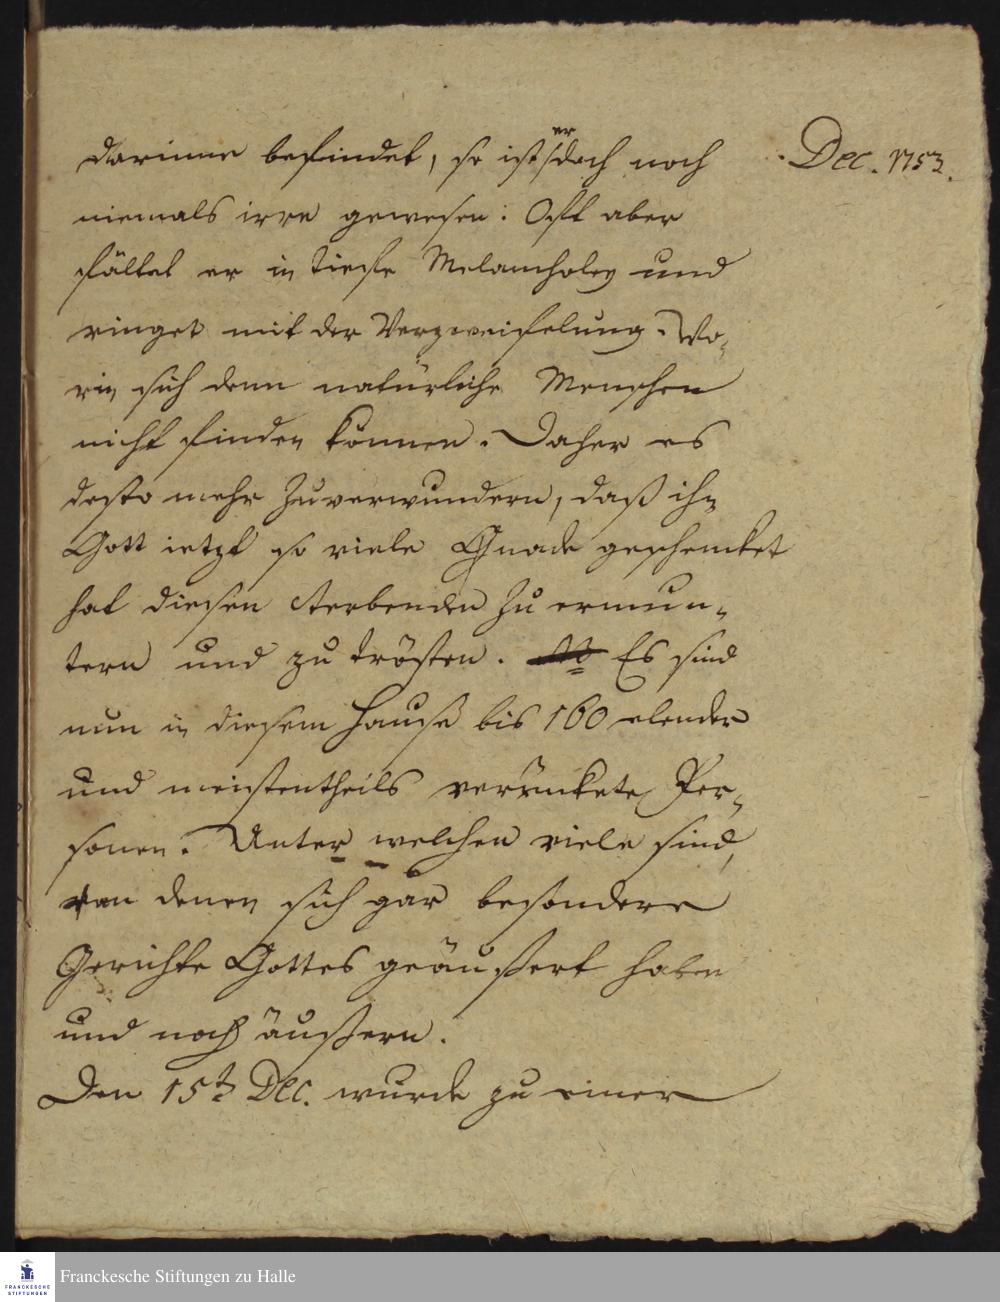 Dec. 1753.
darinne befindet, so ist er doch noch
niemals irre gewesen: Oft aber
fället er in tiefe Melancholey und
ringet mit der Verzweifelung. Wo-
rin sich denn natürliche Menschen
nicht finden können. Daher es
desto mehr zuverwundern, daß ihn
Gott ietzt so viele Gnade geschencket
hat diesen Sterbenden zu ermun-
tern und zu trösten. Es sind
nun in diesem Hause bis 160 elender
und meistentheils verrückete Per-
sonen. Unter welchen viele sind,
von denen sich gar besondere
Gerichte Gottes geäußert haben
und noch äußern.
Den 15t Dec. wurde zu einer
Franckesche Stiftungen zu Halle
FRANCKESCHE
STIFTUNGEN